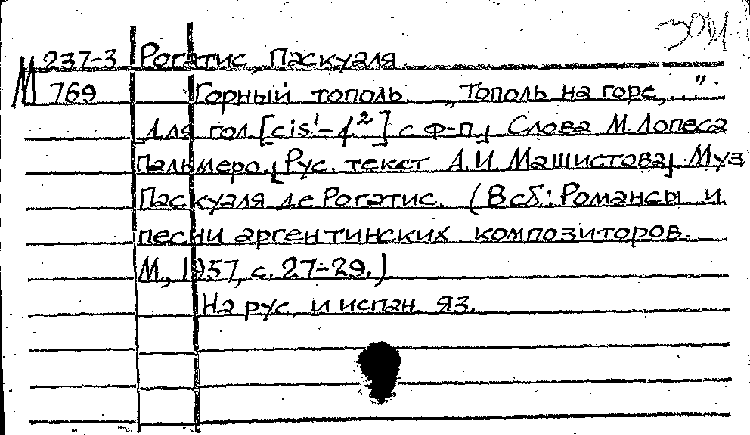 237-3 Рогатис, Паскуаля
М 769 Горный тополь. „Тополь на горе,..."
Для гол. [cis¹-f²] с ф-п., Слова М. Лопеса
Пальмеро. [Рус. текст А. И. Машистова] Муз
Паскуаля де Рогатис. (В сб: Романсы и
песни аргентинских композиторов.
М., 1957, с. 27-29.)
На рус. и испан. яз.